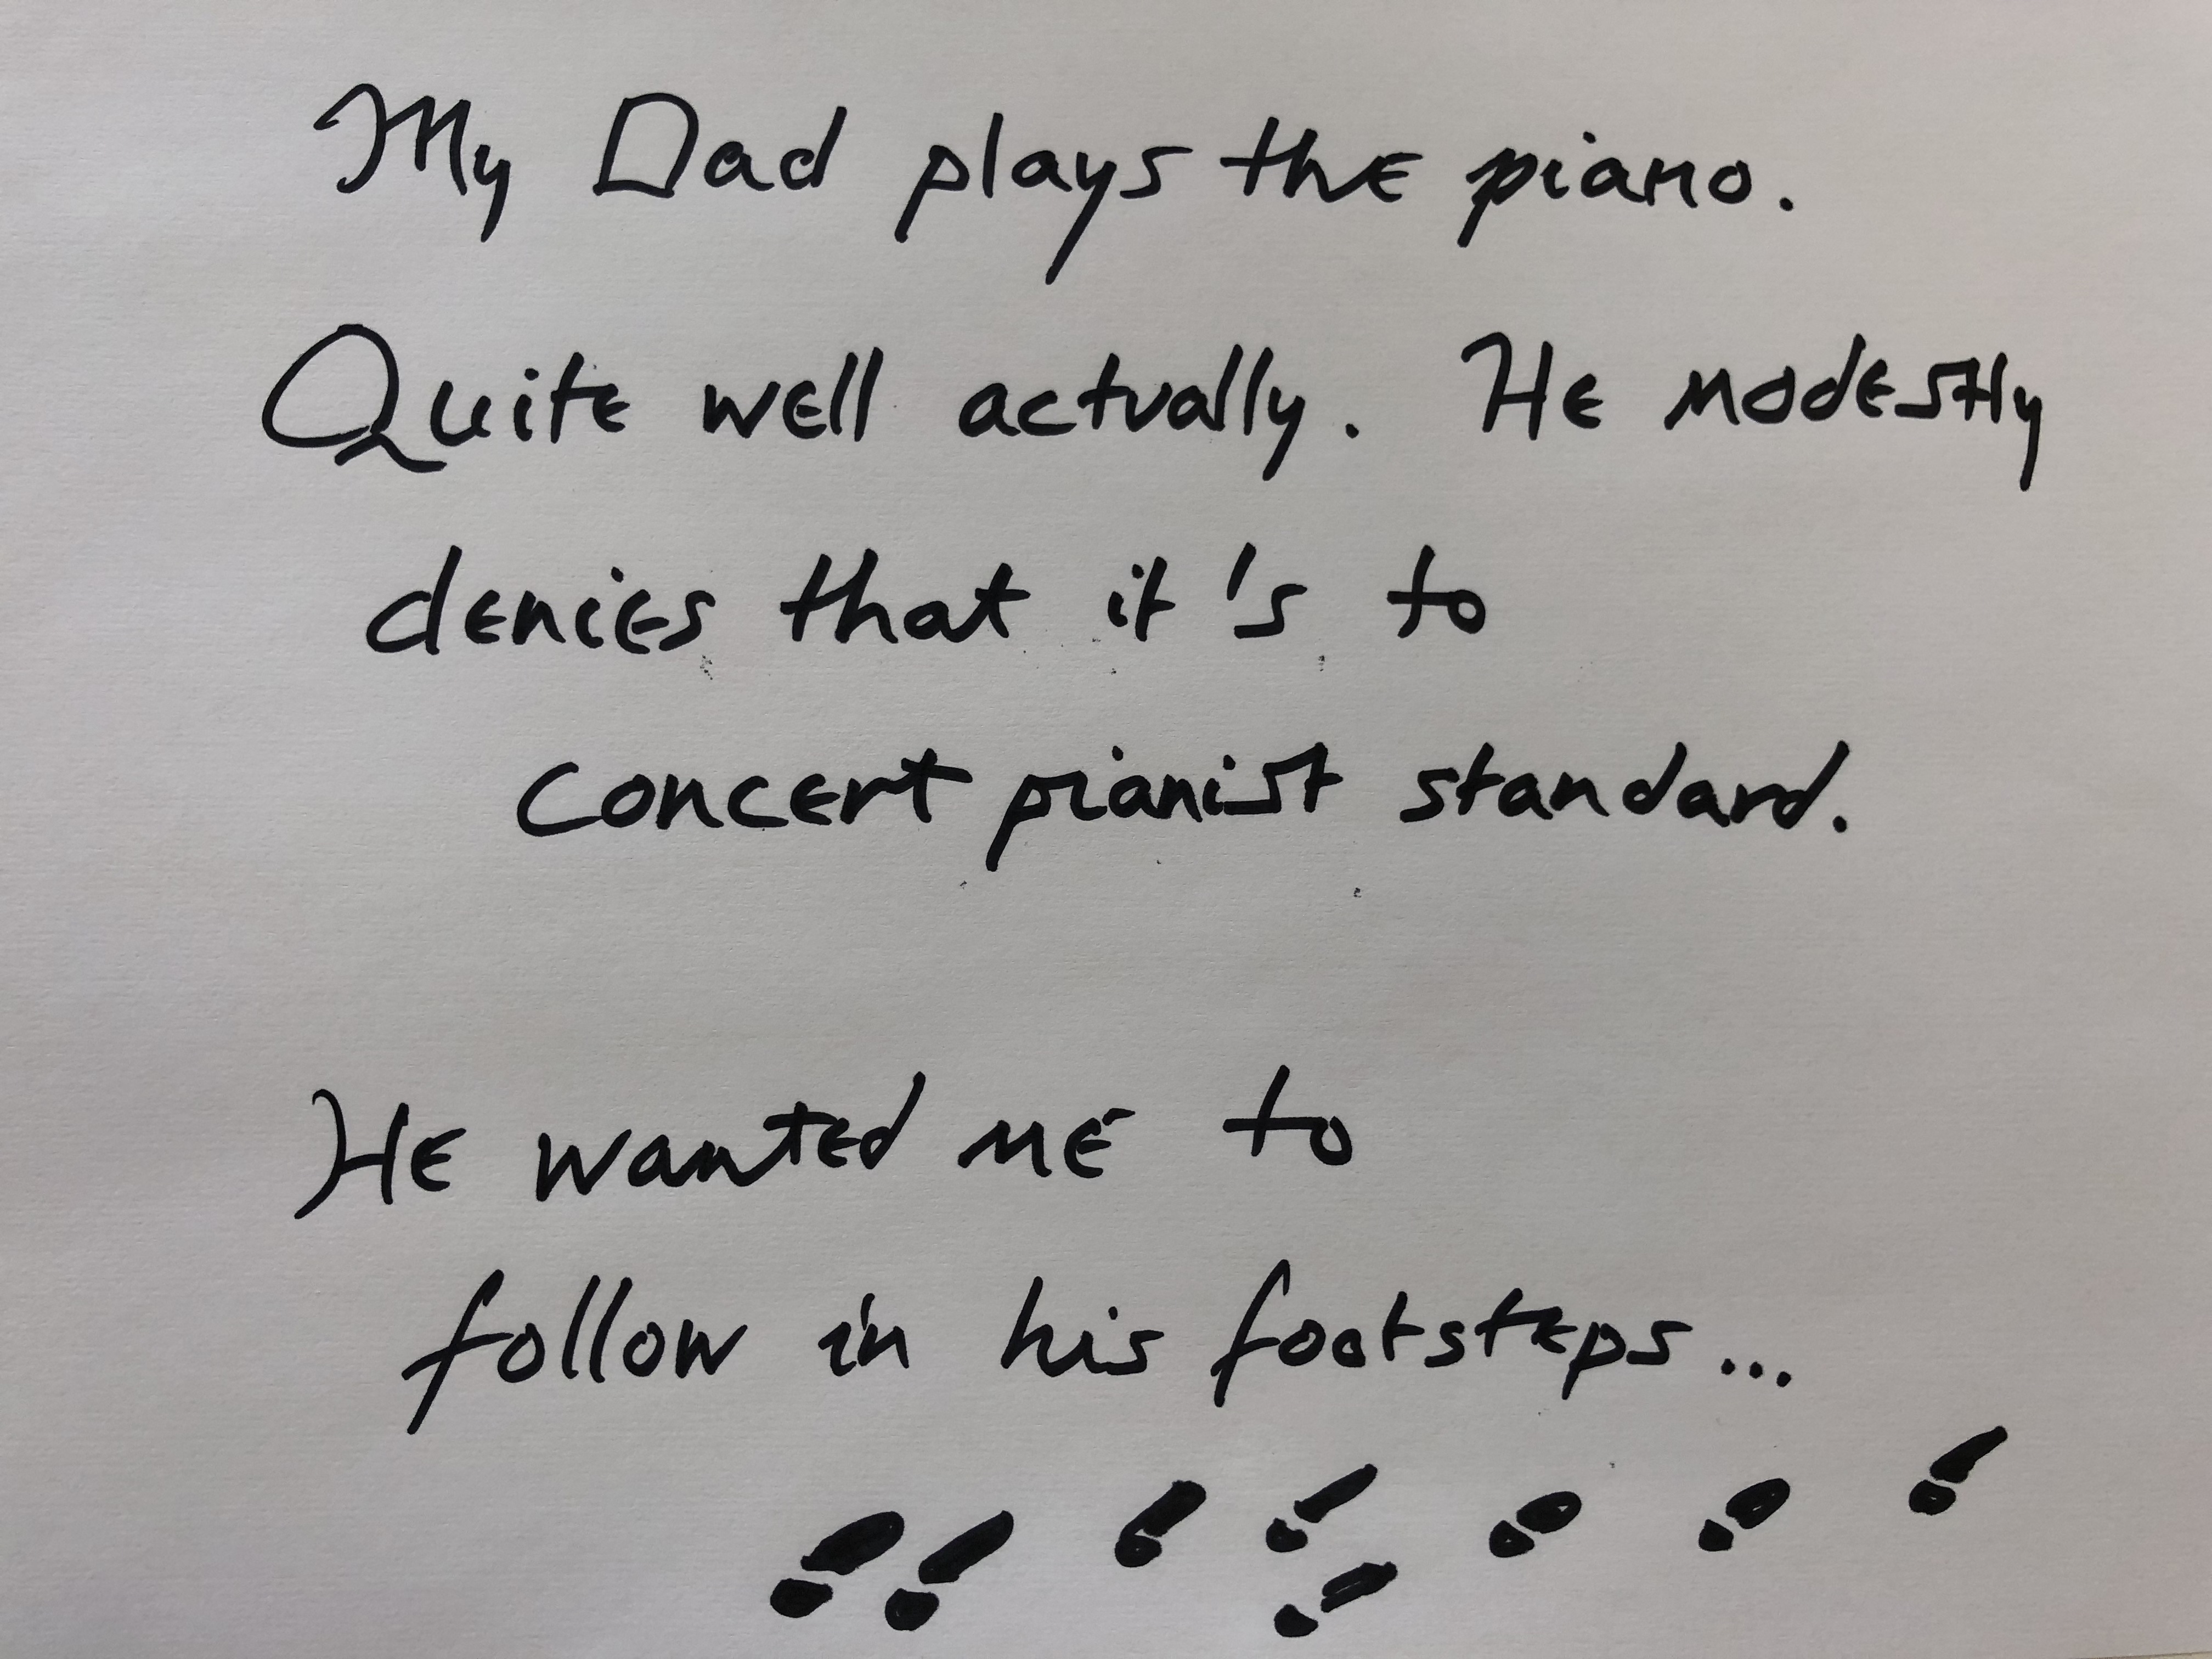 My Dad plays the piano.
Quite well actually. He modestly
denies that it's to
concert pianist standard.
He wanted me to
follow in his footsteps...